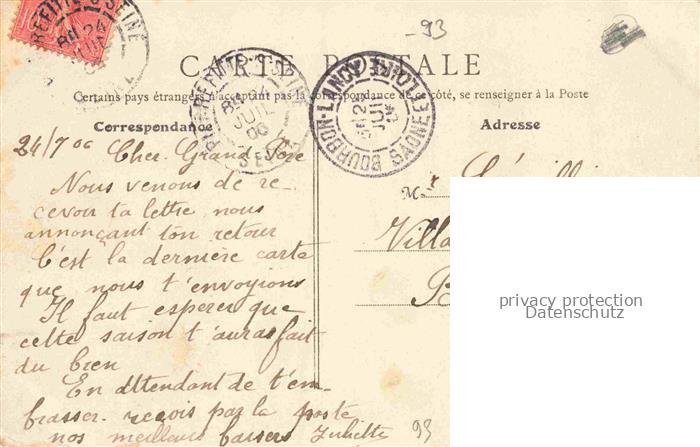 -93
CARTE POSTALE
Certains pays étrangers n'acceptant pas la correspondance de ce côté, se renseigner à la Poste
Correspondance
Adresse
24/7 06 Cher Grand Père
Nous venons de re
cevoir ta lettre nous
annonçant ton retour
C'est la dernière carte
que nous t'envoyions
Il faut espérer que
cette saison t'auras fait
du bien
En attendant de t'em-
brasser reçois par la poste
nos meilleurs baisers Juliette
93
PIERREFITTE SEINE
24 JUIL 06
BOURBON-LANCY SAONE ET LOIRE
M. r
Villa
B
privacy protection
Datenschutz